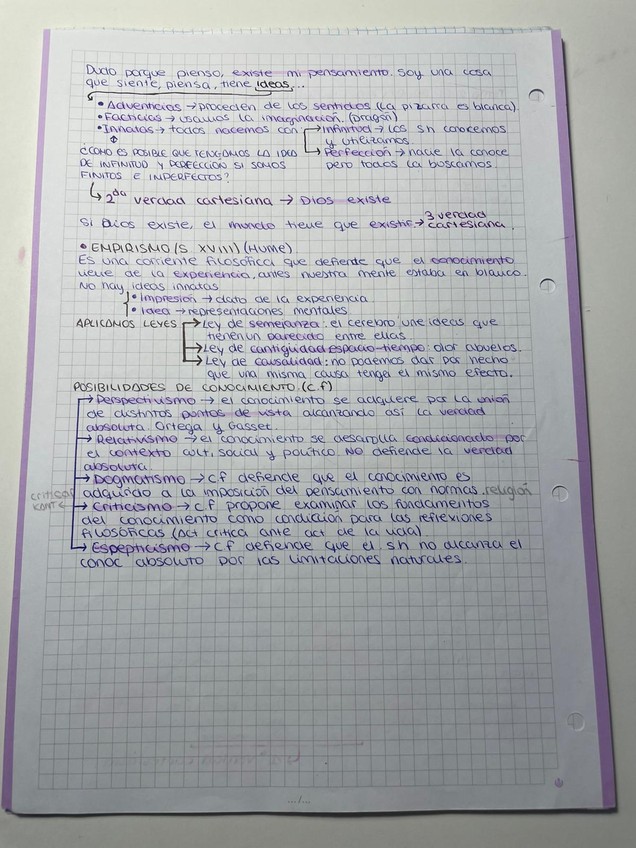 Dudo porque pienso, existe mi pensamiento. Soy una cosa
que siente, piensa, tiene ideas...
• Adventicias → proceden de los sentidos (La pizarra es blanca).
• Facticias → usamos la imaginación. (Dragón)
• Innatas → todos nacemos con → Infinitud → los sh conocemos
y utilizamos
→ Perfección → nadie la conoce
pero todos la buscamos
¿COMO ES POSIBLE QUE TENGAMOS LA IDEA
DE INFINITUD Y PERFECCIÓN SI SOMOS
FINITOS E IMPERFECTOS?
↳ 2da verdad cartesiana → Dios existe
Si Dios existe, el mundo tiene que existir → 3 verdad
cartesiana.
• EMPIRISMO (S XVIII) (HUME)
Es una corriente filosófica que defiende que el conocimiento
viene de la experiencia, antes nuestra mente estaba en blanco.
No hay ideas innatas
• Impresión → dato de la experiencia
• Idea → representaciones mentales
APLICAMOS LEYES → Ley de semejanza: el cerebro une ideas que
tienen un parecido entre ellas
→ Ley de contigüidad espacio-tiempo: olor abuelos.
→ Ley de causalidad: no podemos dar por hecho
que una misma causa tenga el mismo efecto.
POSIBILIDADES DE CONOCIMIENTO. (c.f)
→ Perspectivismo → el conocimiento se adquiere por la unión
de distintos puntos de vista alcanzando así la verdad
absoluta. Ortega y Gasset.
→ Relativismo → el conocimiento se desarolla condicionado por
el contexto cult, social y político NO defiende la verdad
absoluta.
→ Dogmatismo → cf defiende que el conocimiento es
adquirido a la imposición del pensamiento con normas. religión
criticar
KANT ← → Criticismo → cf propone examinar los fundamentos
del conocimiento como condición para las reflexiones
filosóficas (Act critica ante act de la vida)
→ Espepticismo → cf defiende que el sh no alcanza el
conoc absoluto por las limitaciones naturales.
.../...